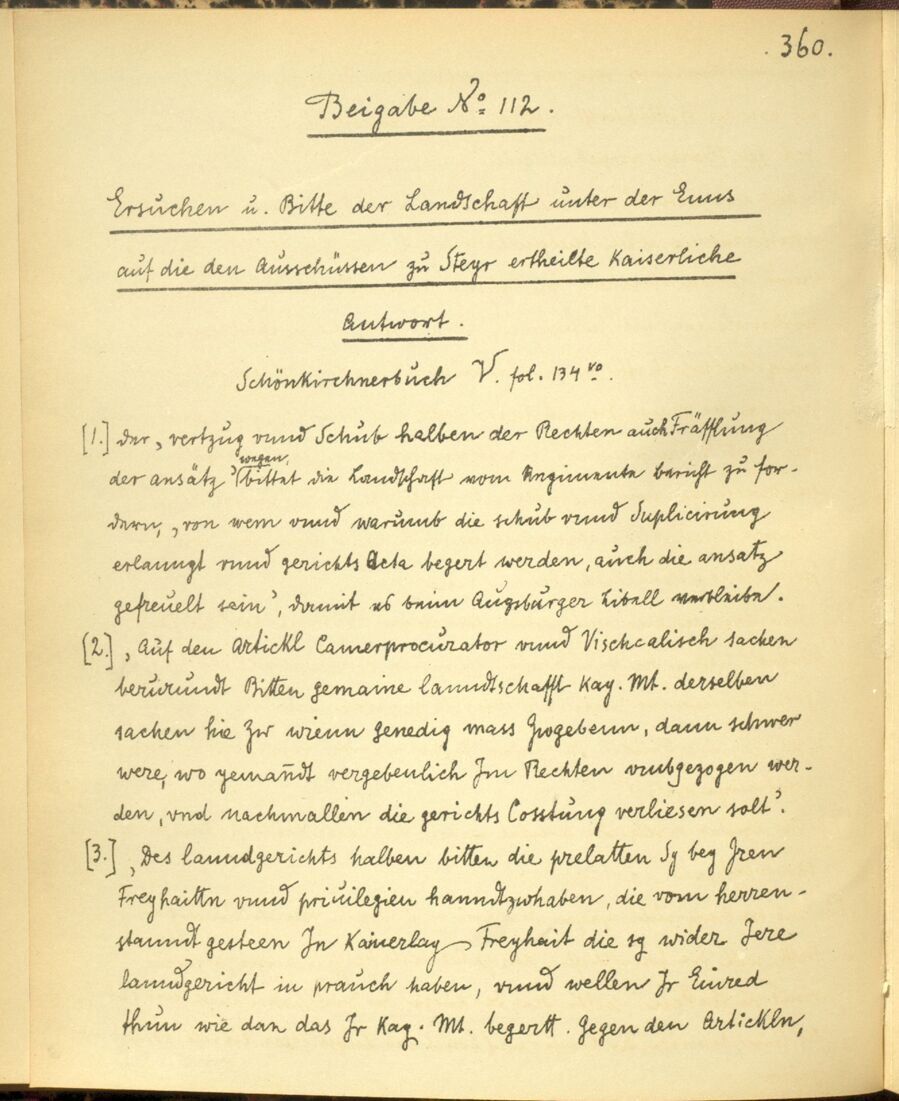 360.
Beigabe No 112.
Ersuchen u. Bitte der Landschaft unter der Enns
auf die den Ausschüssen zu Steyr ertheilte Kaiserliche
Antwort.
Schönkirchnerbuch V. fol. 134 vo.
[1.] Der „vertzug vnnd Schub halben der Rechten auch Fräfflung
wegen
der ansätz' bittet die Landschaft vom Regimente bericht zu for-
dern, „von wem vnnd warumb die schub vnnd Suplicirung
erlanngt vnnd gerichts Acta begert werden, auch die ansatz
gefreuelt sein', damit es beim Augsburger Libell verbleibe.
[2.] „Auf den Artickl Camerprocurator vnnd Vischcalisch sachen
berurundt Bitten gemaine lanndtschafft Kay. Mt. derselben
sachen hie Zw wienn genedig mass Zwgebenn, dann schwer
were, wo yemandt vergebenlich Im Rechten vmbgezogen wer-
den, vnd nachmallen die gerichts Cosstung verliesen solt'.
[3.] „Des lanndgerichts halben bitten die prelatten Sy bey Iren
Freyhaittn vnnd priuilegien hanndtzwhaben, die vom herren-
stanndt gesteen In Kainerlay Freyhait die sy wider Iere
lanndgericht in prauch haben, vnnd wellen Ir Einred
thun wie dan das Ir Kay. Mt. begertt. Gegen den Artickln,